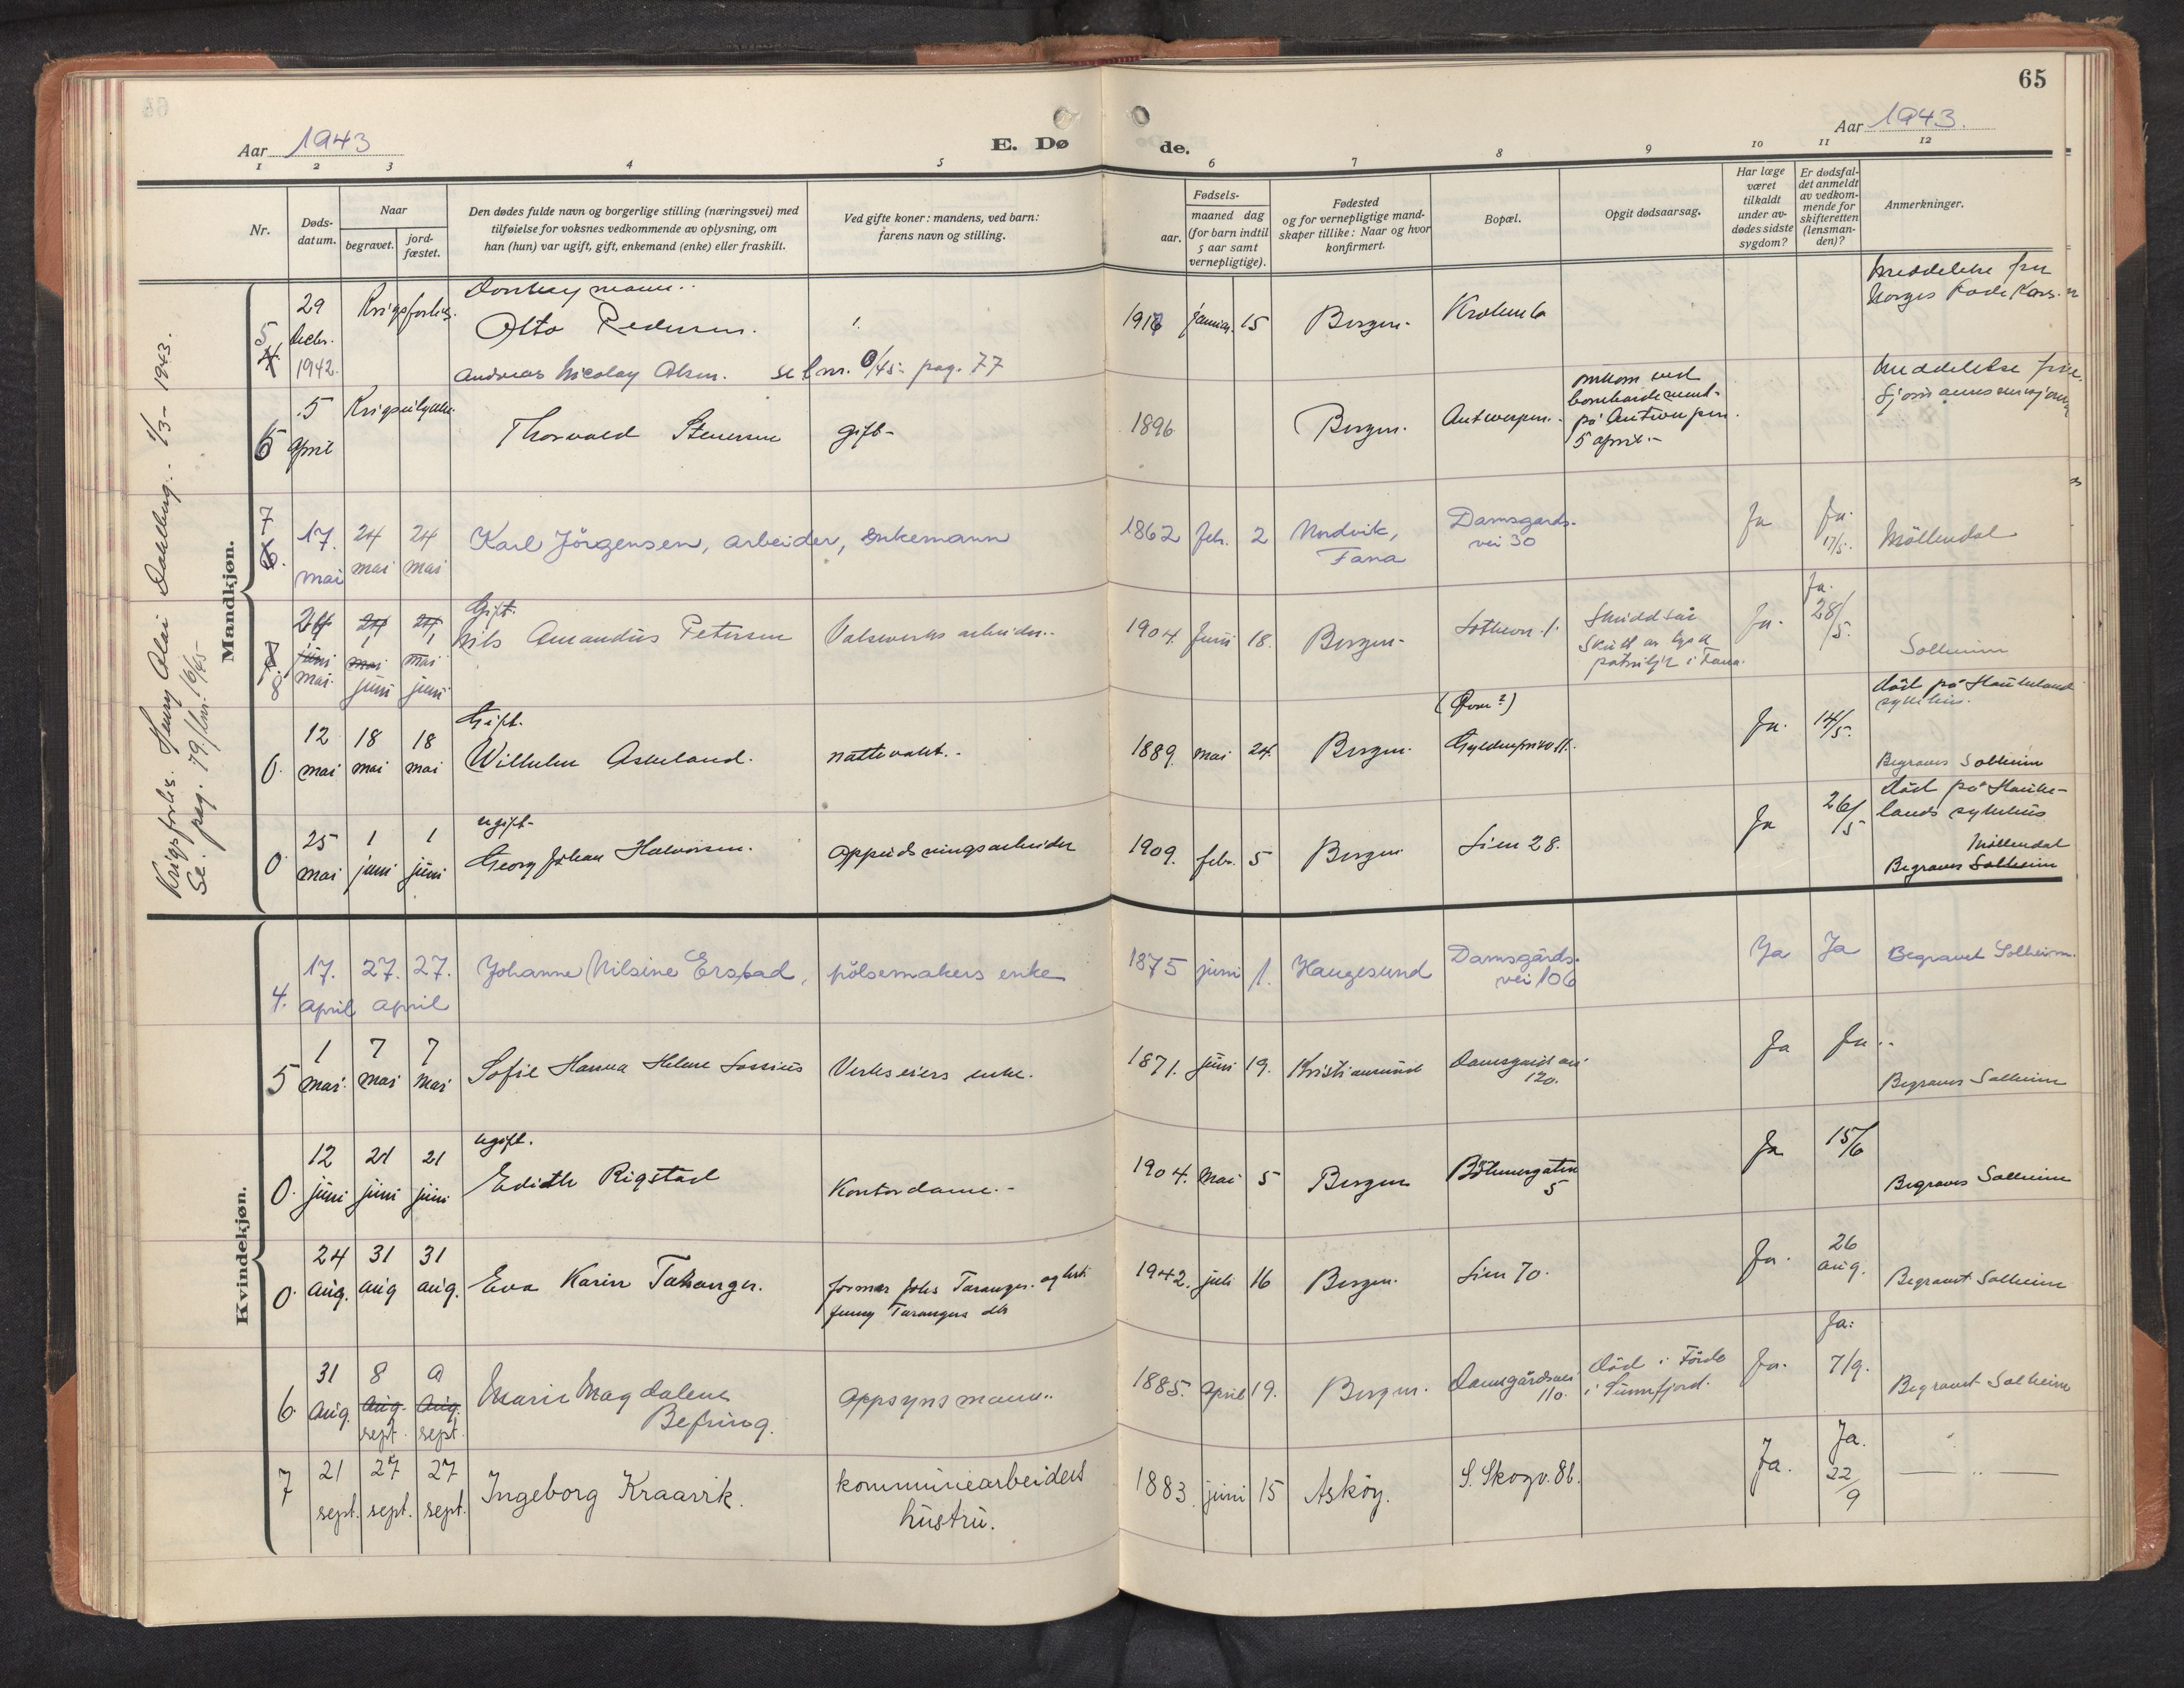 65
Aar 1943
E. Dø
de.
Aar 1943.
1 2 3 4 5 6 7 8 9 10 11 12
Nr.
Døds-
datum.
Naar
begravet.
jord-
fæstet.
Den dødes fulde navn og borgerlige stilling (næringsvei) med
tilføielse for voksnes vedkommende av oplysning, om
han (hun) var ugift, gift, enkemand (enke) eller fraskilt.
Ved gifte koner: mandens, ved barn:
farens navn og stilling.
Fødsels-
aar.
maaned dag
(for barn indtil
5 aar samt
vernepligtige).
Fødested
og for vernepligtige mand-
skaper tillike: Naar og hvor
konfirmert.
Bopæl.
Opgit dødsaarsag.
Har læge
været
tilkaldt
under av-
dødes sidste
sygdom?
Er dødsfal-
det anmeldt
av vedkom-
mende for
skifteretten
(lensman-
den)?
Anmerkninger.
Krigsforlis. Henry Olai 1/3- 1943.
Se. pag. 79
Mandkjøn.
5 29 Decbr. 1942. Krigsforlis.
Donkeymann..
Otto Pedersen.
januar 15 Bergen.
Meddelelse fra
Norges
Andreas Nicolay Olsen. se pag. 77
5 April
Thorvald Stenersen gift- 1896 Bergen. Antwerpen.
omkom ved
bombardement
på Antwerpen.
5 april.-
Meddelelse fra
7 17. mai 24 mai 24 mai Karl Jörgensen, arbeider, Enkemann 1862 feb. 2 Nordvik,
Fana
Damsgårds-
vei 30
Ja Ja. 17/5. Möllendal
8 mai 1 juni 1 juni
Gift.
Nils Amandus Petersen Valseverks arbeider.. 1904. Juni 18. Bergen-
Skuddsår
i Fana.
Ja. Ja. 28/5. Solheim
0. 12 mai 18 mai 18 mai
Gift.
Wilhelm Askeland. nattevakt.- 1889. mai 24. Bergen.
Ja. 14/5.
död på Haukeland
sykehus.
Begraves Solheim
0 25 mai 1 juni 1 juni
ugift-
Georg Johan Halvorsen. oppudsningsarbeider 1909. feb. 5 Bergen Lien 28. Ja 26/5
död på Hauke-
lands sykehus
Möllendal
Begraves Solheim
Kvindekjøn.
4. 17. april 27. april 27. Johanne Nilsine Erstad, pölsemakers enke 1875 juni 1. Haugesund Damsgårds-
vei 106
Ja Ja Begravet Solheim.
5 1 mai. 7 mai 7 mai Sofie Hanna Helene Lossius Verkseiers enke. 1871. juni 19. Kristiansund
120.
Ja Ja.. Begraves Solheim
0. 12 juni 21 juni 21 juni
ugift.
Edith Rigstad Kontordame.- 1904. Mai 5 Bergen Böhmergaten
5
Ja 15/6 Begraves Solheim
0. 24 aug. 31 aug 31 aug. Eva Karin Taranger. former Johs Taranger. og hst.
Jenny Tarangers dtr
1942. juli 16 Bergen. Lien 70. Ja. 26 aug. Begravet Solheim
6. 31 Aug. 8 sept.
Marie Magdalene
Befring.
oppsynsmann.. 1885. April 19. Bergen. Damsgårdsvei
110.
död i Förde
i Sunnfjord.
Ja. Ja. 7/9. Begravet Solheim
7 21 sept. 27 sept. 27 sept. Ingeborg Kraarvik. kommunearbeiders
hustru.
1883. juni 15 Asköy. S. Skogv. 86. Ja. Ja. 22/9 — „ —